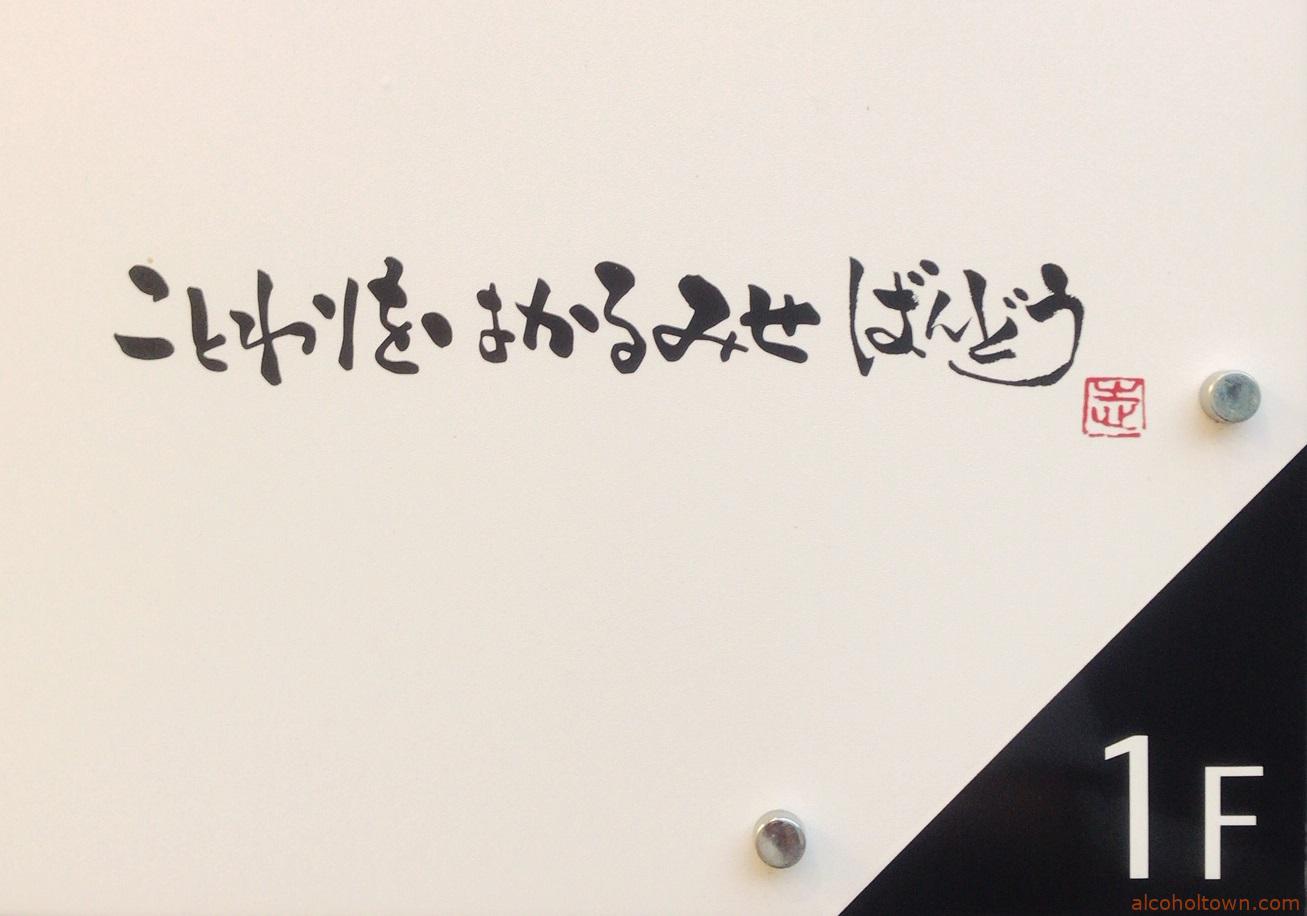 ことわりをはかるみせ ばんどう
1F
alcoholtown.com